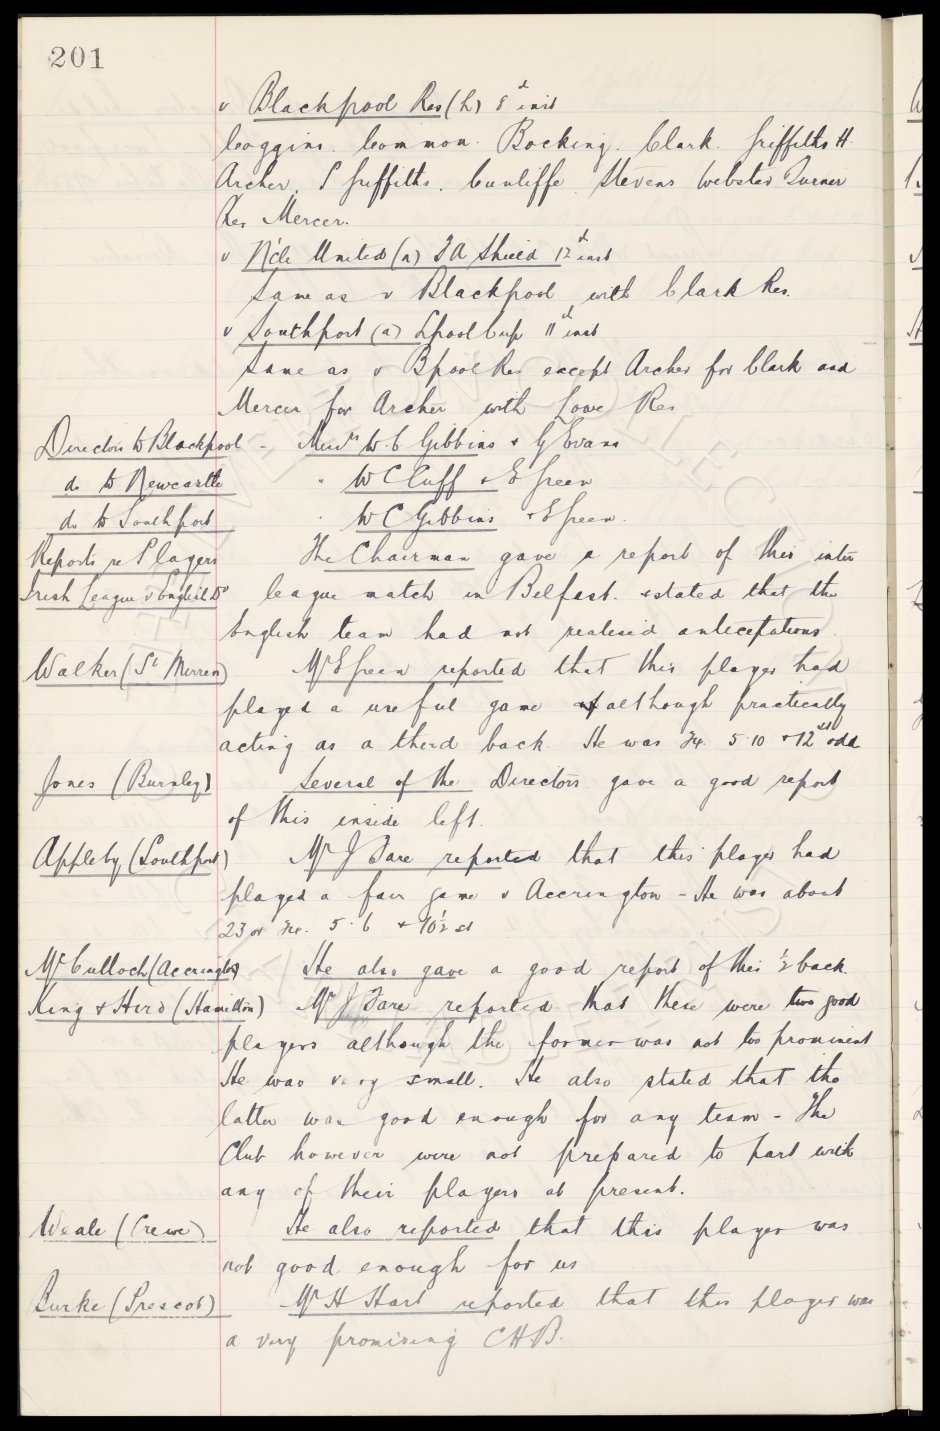 201
v Blackpool Res (h) 8th inst
Coggins. Common. Bocking. Clark. Griffiths H.
Archer. P Griffiths. Cunliffe. Stevens Webster Turner
Res Mercer.
v N'cle United (a) FA Shield 12th inst
Same as v Blackpool with Clark Res.
v Southport (a) Lpool Cup 11th inst
Same as v Bpool Res except Archer for Clark and
Mercer for Archer with Lowe Res
Directors to Blackpool - Messrs W.C. Gibbins & G Evans
do to Newcastle " W C Cuff & E Green
do to Southport " W C Gibbins & E Green.
Reports re Players The Chairman gave a report of this inter
Irish League v English Do league match in Belfast. & stated that the
English team had not realised anticipations.
Walker (St Mirren) Mr E Green reported that this player had
played a useful game although practically
acting as a third back. He was 24. 5.10 & 12st odd
Jones (Burnley) Several of the Directors gave a good report
of this inside left.
Appleby (Southport) Mr J Fare reported that this player had
played a fair game v Accrington - He was about
23 or 24. 5.6 & 10½ st
McCulloch (Accrington) He also gave a good report of this ½ back.
King & Hird (Hamilton) Mr J Fare reported that these were two good
players although the former was not too prominent
He was very small. He also stated that the
latter was good enough for any team - The
Club however were not prepared to part with
any of their players at present.
Weale (Crewe) He also reported that this player was
not good enough for us
Burke (Prescot) Mr H Hart reported that this player was
a very promising CHB.